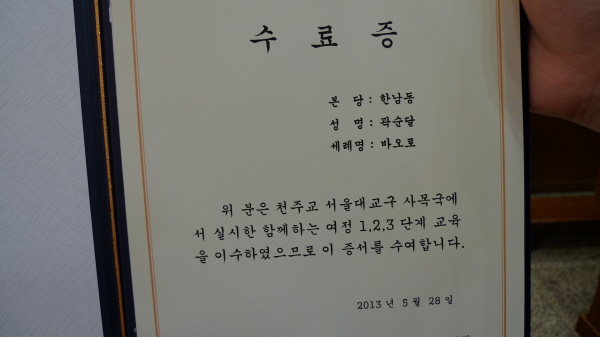 수 료 증
본 당 : 한남동
성 명 : 곽순달
세례명 : 바오로
위 분은 천주교 서울대교구 사목국에
서 실시한 함께하는 여정 1,2,3 단계 교육
을 이수하였으므로 이 증서를 수여합니다.
2013 년 5 월 28 일